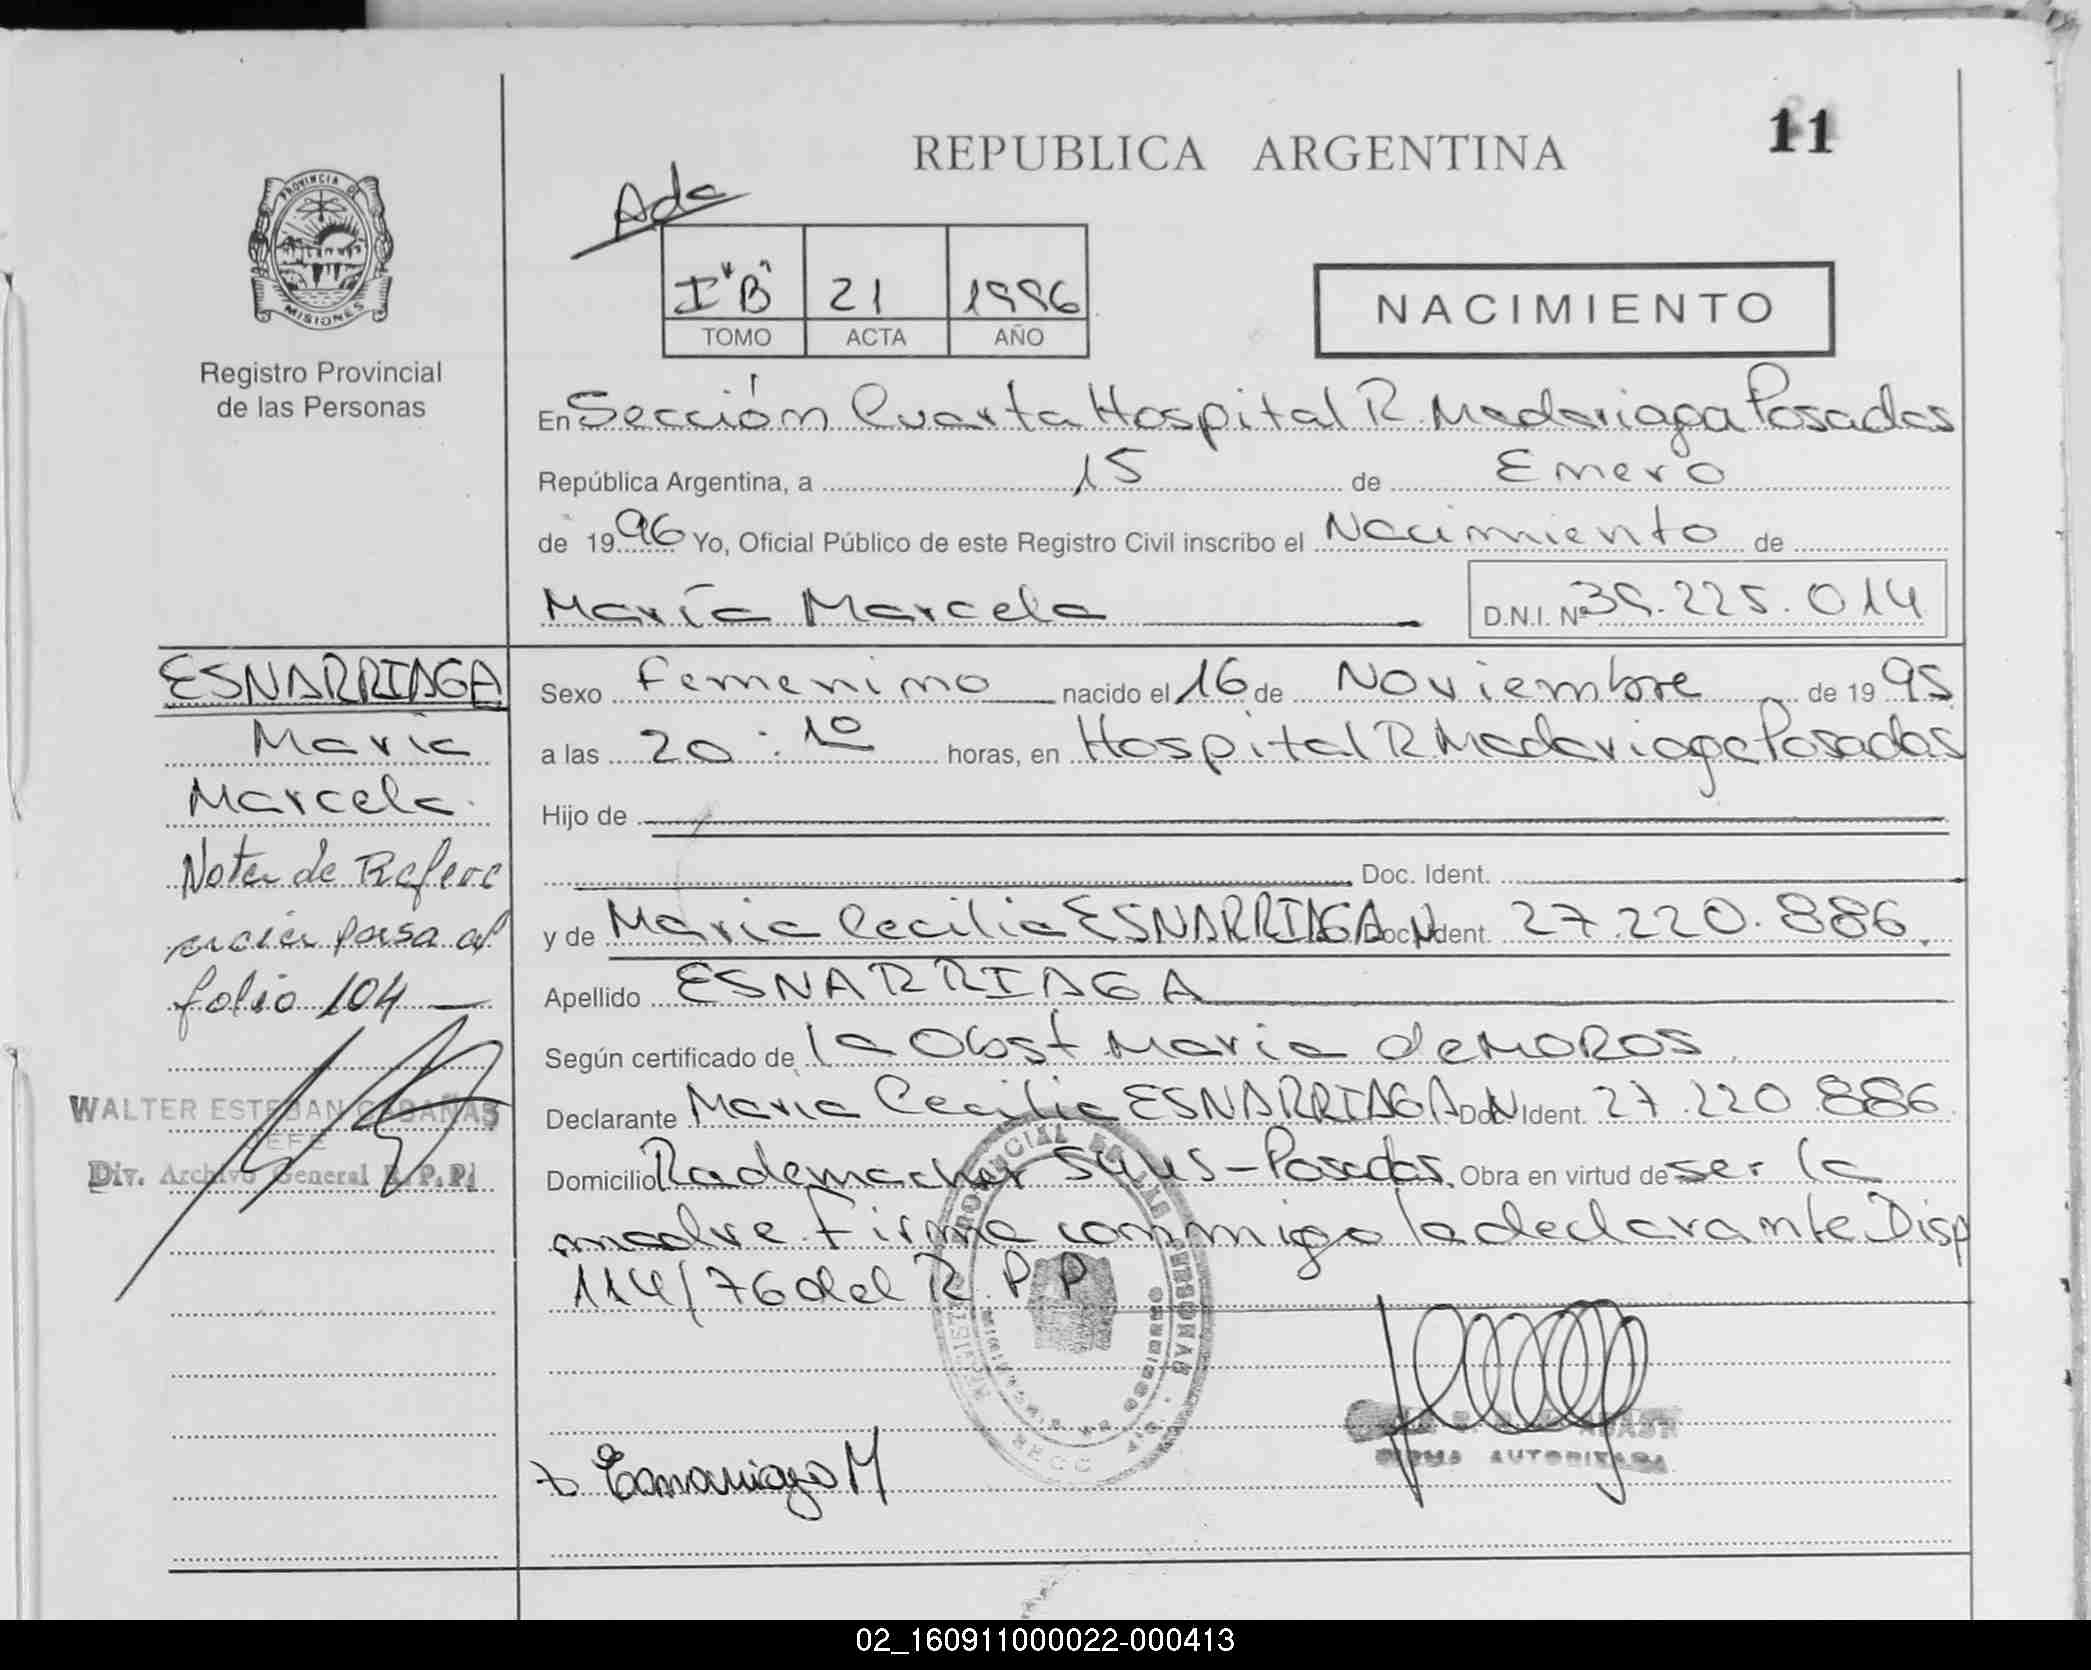 11
REPUBLICA ARGENTINA
Ada
PROVINCIA DE
MISIONES
I"B" 21 1996
TOMO ACTA AÑO
NACIMIENTO
Registro Provincial
de las Personas
En Sección Cuarta Hospital R. Madariaga Posadas
República Argentina, a 15 de Enero
de 1996 Yo, Oficial Público de este Registro Civil inscribo el Nacimiento de
María Marcela D.N.I. Nº 39.225.014
ESNARRIAGA
Maria
Marcela
Nota de Refere
ncia pasa al
folio 104
WALTER ESTEBAN CABAÑAS
JEFE
Div. Archivo General R.P.P.
Sexo Femenino nacido el 16 de Noviembre de 1995
a las 20:10 horas, en Hospital R Madariaga Posadas
Hijo de
Doc. Ident.
y de Maria Cecilia ESNARRIAGA Doc. Ident. 27.220.886
Apellido ESNARRIAGA
Según certificado de la Obst Maria de MOROS
Declarante Maria Cecilia ESNARRIAGA Doc. Ident. 27.220.886
Domicilio Rademacher S/Nº - Posadas. Obra en virtud de ser la
madre Firma conmigo la declarante Disp
114/76 del R.P.P
FIRMA AUTORIZADA
Esnarriaga M
02_160911000022-000413